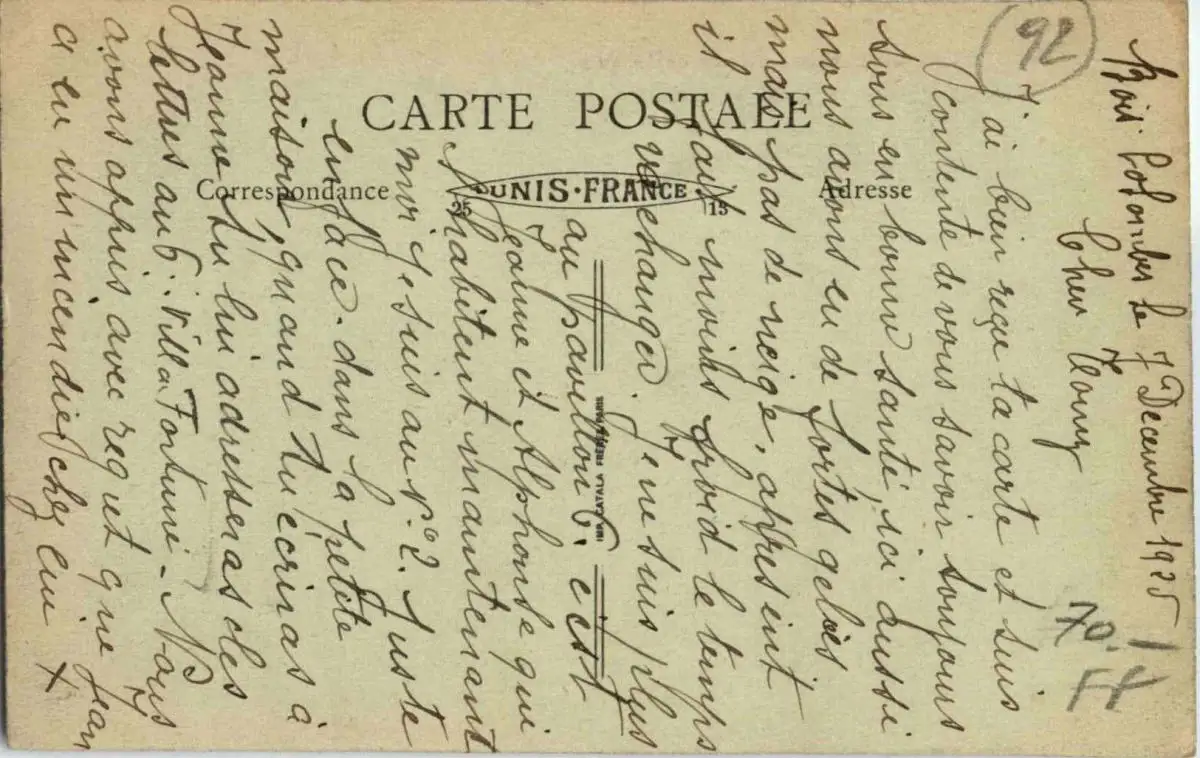 CARTE POSTALE
Correspondance
UNIS-FRANCE
25
13
Adresse
IMP. CATALA FRERES, PARIS
92
70.
FF
Bois Colombes le 7 Décembre 1925
Cher
J'ai bien reçu ta carte et suis
contente de vous savoir toujours
tous en bonne santé, ici aussi
nous avons eu de fortes gelées
mais pas de neige, à présent
il fait moins froid le temps
va changer. Je ne suis plus
au pavillon 6. c'est
Jeanne et Alphonse qui
l'habitent maintenant
moi je suis au n° 2. Juste
en face. dans la petite
maison, quand tu écriras à
Jeanne tu lui adresseras des
lettres au 6. Villa Fortuné. Nous
avons appris avec regret que Jean
a eu un incendie chez lui X